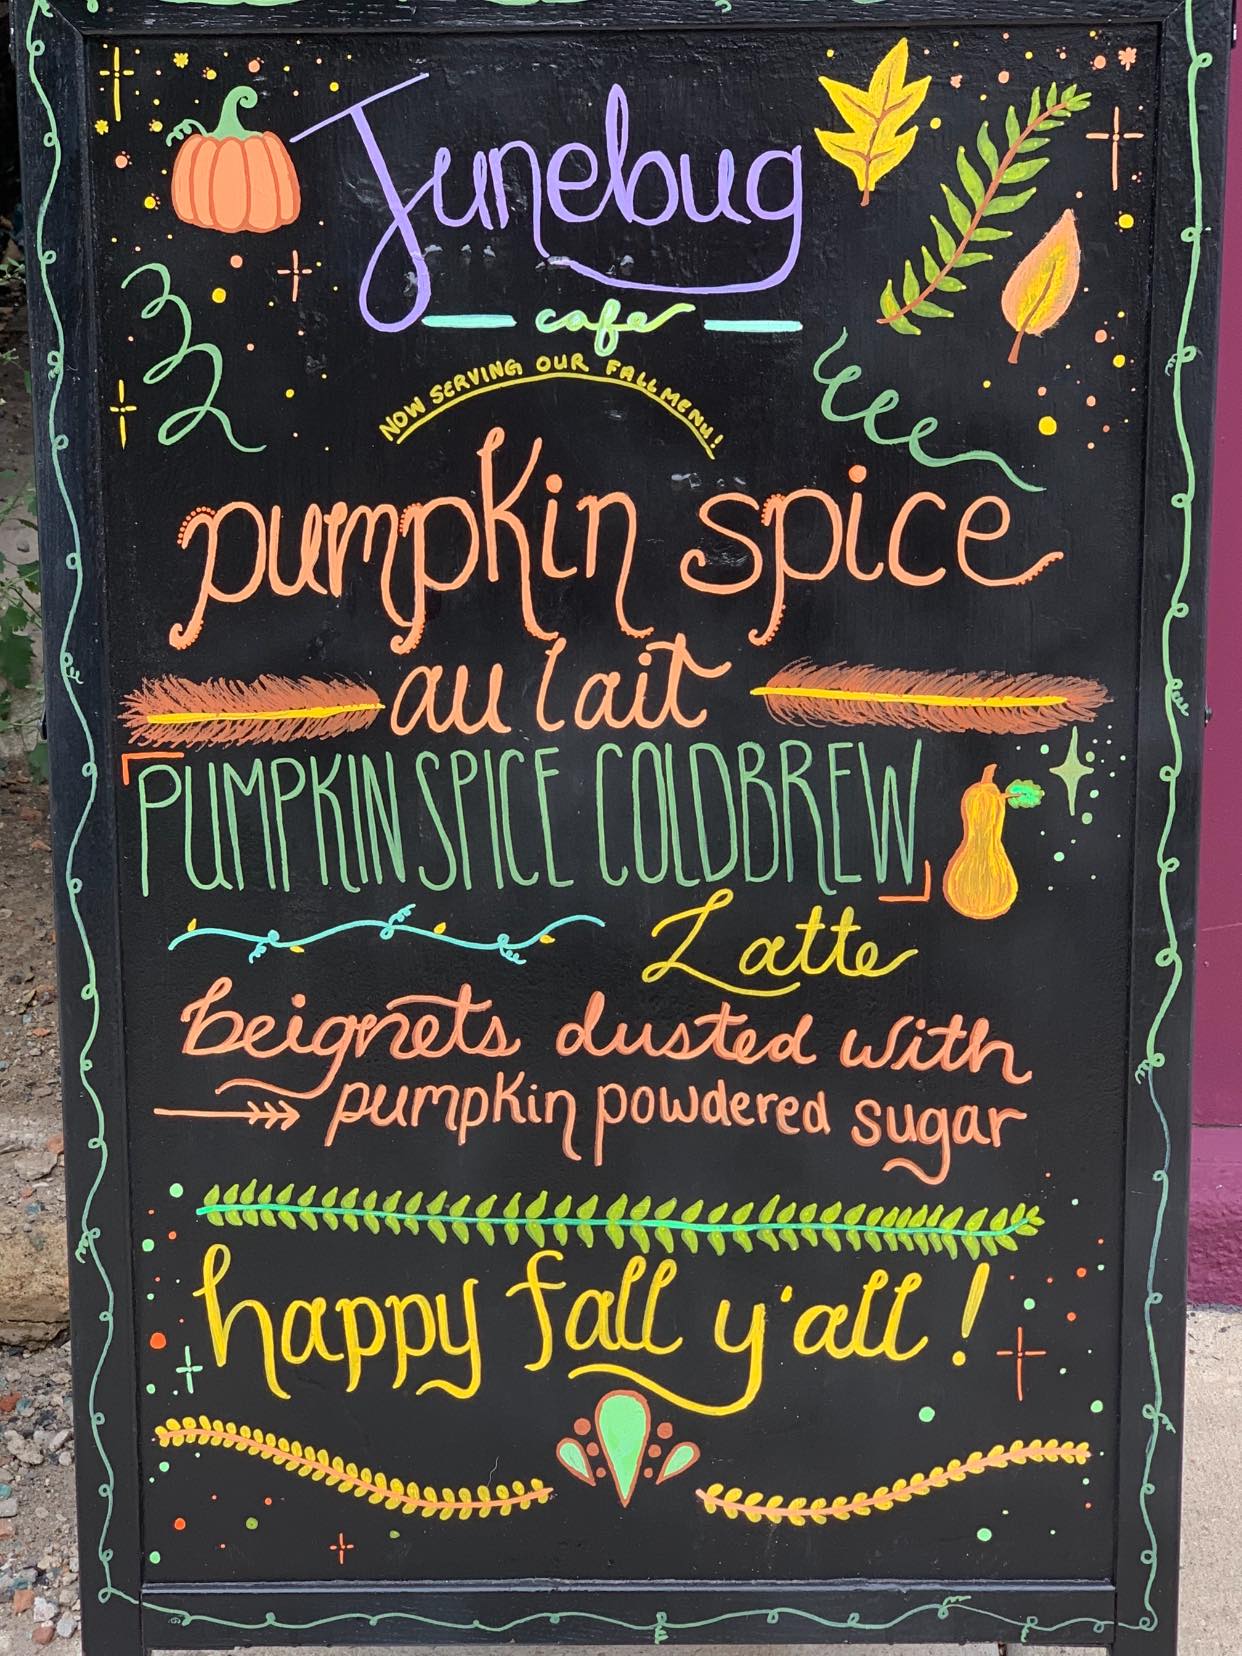 Junebug
cafe
NOW SERVING OUR FALL MENU!
pumpkin spice
au lait
PUMPKIN SPICE COLDBREW
Latte
beignets dusted with
pumpkin powdered sugar
happy fall y'all!